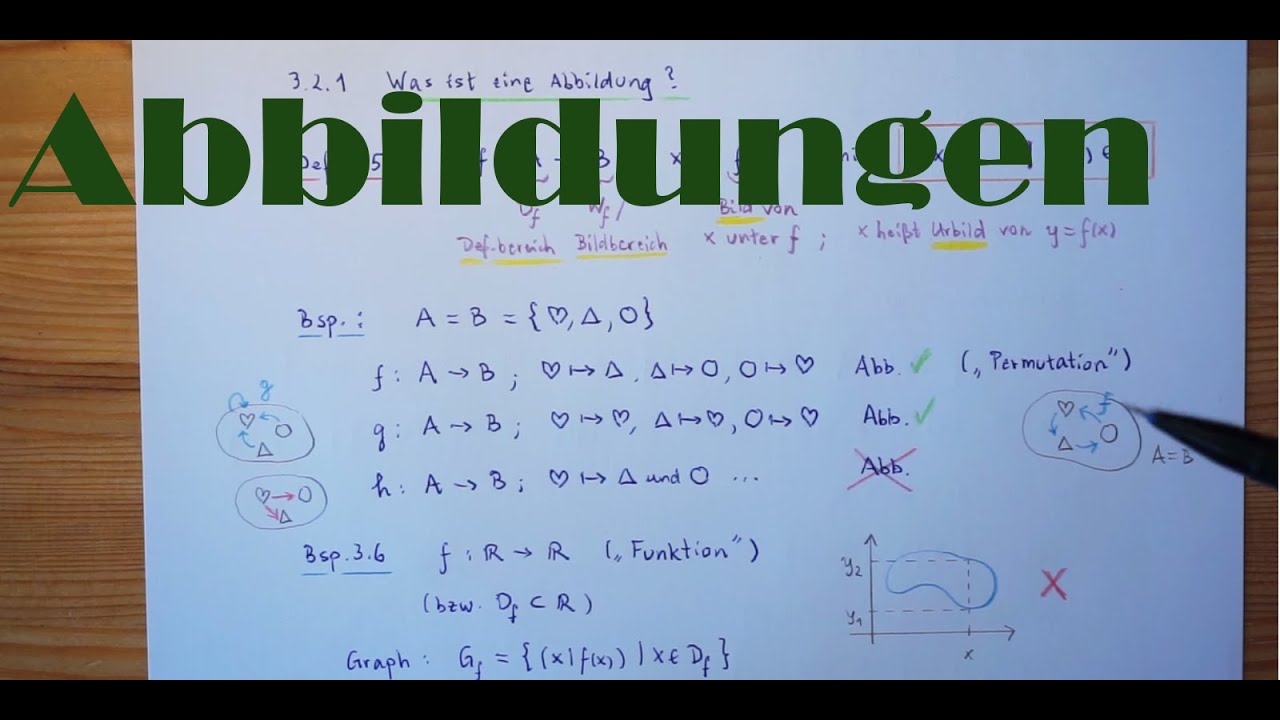 3.2.1 Was ist eine Abbildung?
Abbildungen
D_f W_f / Bild von
Def.bereich Bildbereich x unter f ; x heißt Urbild von y = f(x)
Bsp.: A = B = {♡, △, ○}
f : A → B ; ♡ ↦ △, △ ↦ ○, ○ ↦ ♡ Abb. ✓ („Permutation")
g : A → B ; ♡ ↦ ♡, △ ↦ ♡, ○ ↦ ♡ Abb. ✓
h : A → B ; ♡ ↦ △ und ○ ... Abb.
g
f
A = B
Bsp. 3.6 f : ℝ → ℝ („Funktion")
(bzw. D_f ⊂ ℝ)
Graph : G_f = { (x | f(x)) | x ∈ D_f }
y₂
y₁
x
X